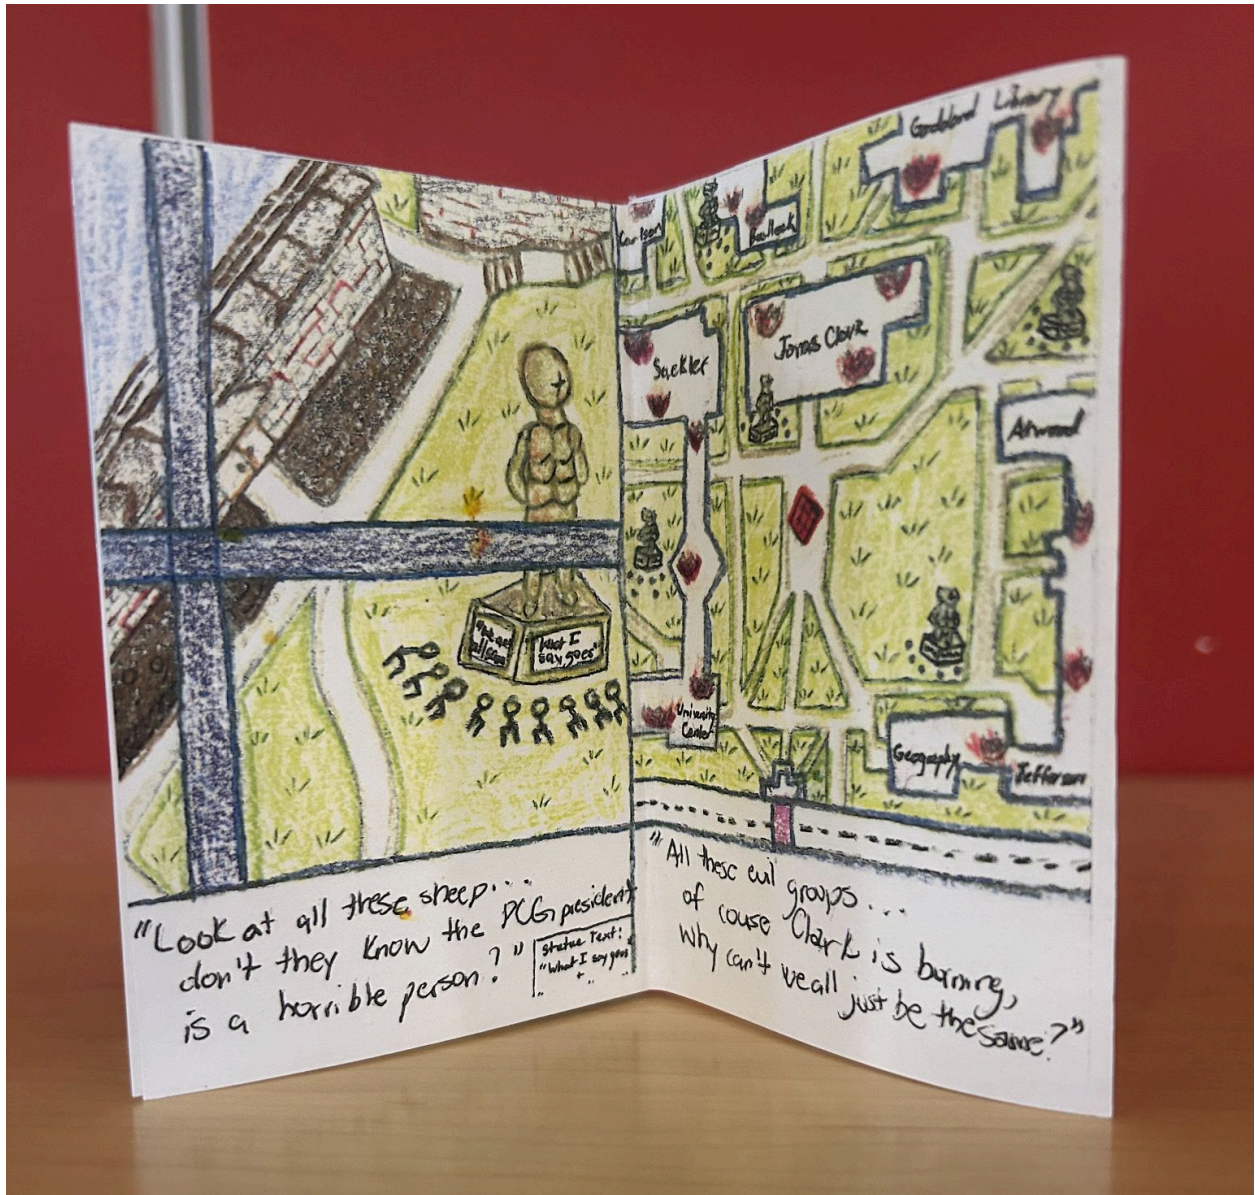 "What I
say goes"
"Look at all these sheep...
don't they know the PCG president
is a horrible person?"
Statue Text:
"What I say goes
+
Goddard Library
Carlson
Sackler
Jonas Clark
Atwood
University
Center
Geography
Jefferson
"All these evil groups...
of couse Clark is burning,
why can't we all just be the same?"